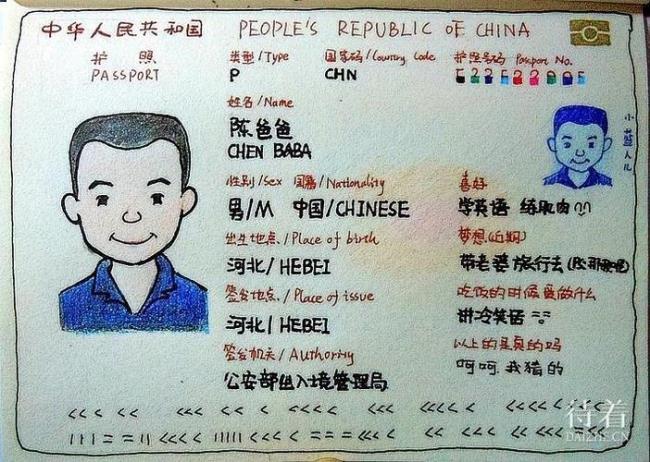 中华人民共和国 PEOPLE'S REPUBLIC OF CHINA
护照 类型/Type 国家码/Country Code 护照号码 Passport No.
PASSPORT P CHN
姓名/Name
陈爸爸
CHEN BABA
小蓝人儿
性别/Sex 国籍/Nationality 喜好
男/M 中国/CHINESE 学英语 练肌肉
出生地点/Place of birth 梦想(近期)
河北/HEBEI 带老婆旅行去
签发地点/Place of issue 吃饭的时候爱做什么
河北/HEBEI 讲冷笑话
签发机关/Authority 以上的是真的吗
公安部出入境管理局 呵呵.我猜的
待着
DAIZHE.CN